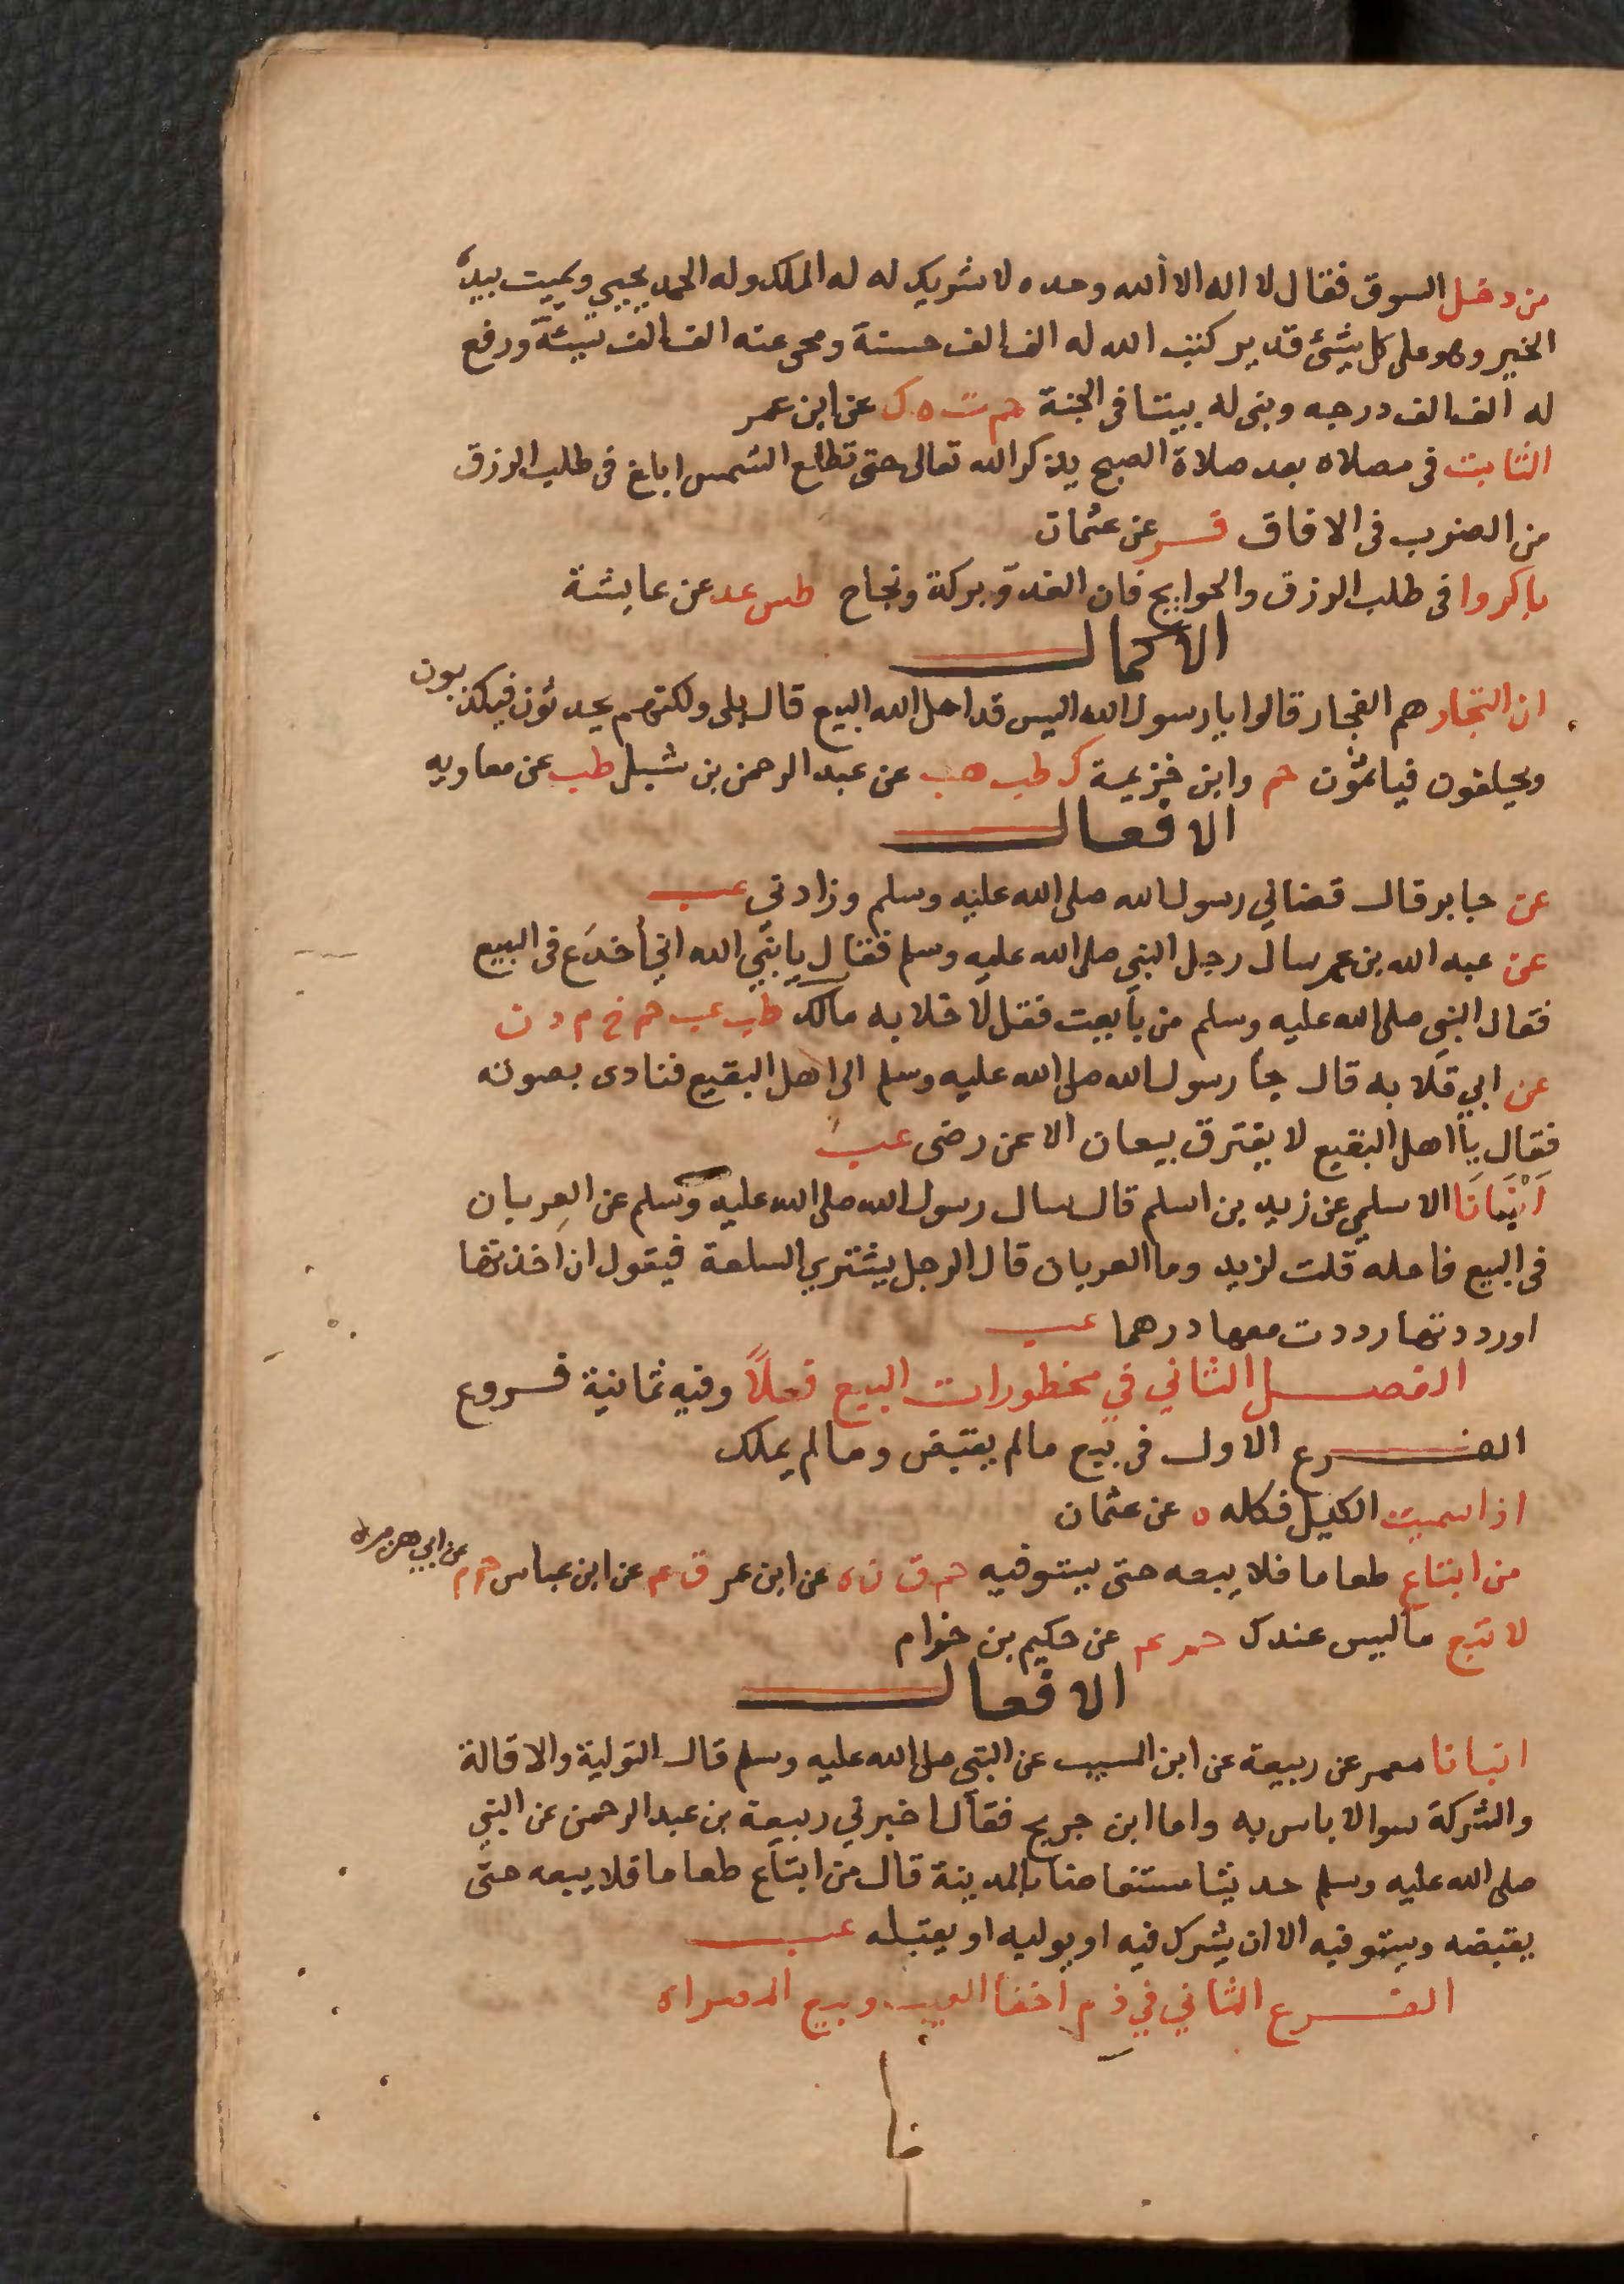 من دخل السوق فقال لا اله الا الله وحده لا شريك له له الملك وله الحمد يحيي ويميت بيده
الخير وهو على كل شئ قدير كتب الله له الف الف حسنة ومحى عنه الف الف سيئة ورفع
له الف الف درجه وبنى له بيتا فى الجنة حم ت ه ك عن ابن عمر
الثابت فى مصلاه بعد صلاة الصبح يذكر الله تعالى حتى تطلع الشمس ابلغ فى طلب الرزق
من الضرب فى الافاق فر عن عثمان
باكروا فى طلب الرزق والحوايج فان الغدو بركة ونجاح طس عد عن عايشة
الاكمال
ان التجار هم الفجار قالوا يا رسول الله اليس قد احل الله البيع قال بلى ولكنهم يحدثون فيكذبون
ويحلفون فياثمون حم وابن خزيمة ك طب هب عن عبد الرحمن بن شبل طب عن معاويه
الافعال
عن جابر قال قضاني رسول الله صلى الله عليه وسلم وزادني عب
عن عبد الله بن عمر سال رجل النبي صلى الله عليه وسلم فقال يا نبي الله اني أخدَع فى البيع
فقال النبي صلى الله عليه وسلم من بايعت فقل لا خلابه مالك ط عب حم خ م د ن
عن ابي قلابه قال جأ رسول الله صلى الله عليه وسلم الى اهل البقيع فنادى بصوته
فقال يا اهل البقيع لا يفترق بيعان الا عن رضى عب
اَنْبَانَا الاسلمي عن زيد بن اسلم قال سال رسول الله صلى الله عليه وسلم عن العربان
فى البيع فاحله قلت لزيد وما العربان قال الرجل يشتري السلعة فيقول ان اخذتها
اورددتها رددت معها درهما عب
الفصل الثاني في محظورات البيع فعلاً وفيه ثمانية فروع
الفرع الاول فى بيع مالم يقبض ومالم يملك
اذا سميت الكيل فكله ه عن عثمان
من ابتاع طعاما فلا يبعه حتى يستوفيه حم ق ن ه عن ابن عمر ق عم عن ابن عباس حم م عن ابي هريره
لا تبع ما ليس عندك حم عم عن حكيم بن خزام
الافعال
انبانا معمر عن ربيعة عن ابن المسيب عن النبي صلى الله عليه وسلم قال التولية والاقالة
والشركة سوا لا باس به واما ابن جريج فقال اخبرني ربيعة بن عبد الرحمن عن النبي
صلى الله عليه وسلم حديثا مستفاضا بالمدينة قال من ابتاع طعاما فلا يبعه حتى
يقبضه ويستوفيه الا ان يشرك فيه او يوليه او يقيله عب
الفرع الثاني في ذم اخفا العيب وبيع المصراه